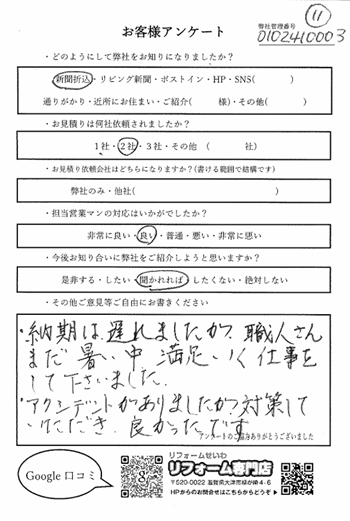 ⑪
お客様アンケート
弊社管理番号
0102410003
・どのようにして弊社をお知りになりましたか？
新聞折込・リビング新聞・ポストイン・HP・SNS(　　　)
通りがかり・近所にお住まい・ご紹介(　　様)・その他(　　)
・お見積りは何社依頼されましたか？
1社・2社・3社・その他（　　社)
・お見積り依頼会社はどちらになりますか？(書ける範囲で結構です)
弊社のみ・他社(　　　)
・担当営業マンの対応はいかがでしたか？
非常に良い・良い・普通・悪い・非常に悪い
・今後お知り合いに弊社をご紹介しようと思いますか？
是非する・したい・聞かれれば・したくない・絶対しない
・その他ご意見等ご自由にお書きください
・納期は遅れましたが、職人さん
まだ暑い中満足いく仕事を
して下さいました.
・アクシデントがありましたが対策して
いただき、良かったです
アンケートのご協力ありがとうございました
Google 口コミ
リフォームせいわ
リフォーム専門店
〒520-0022 滋賀県大津市柳が崎4-6
HPからのお問合せはこちらからどうぞ▶